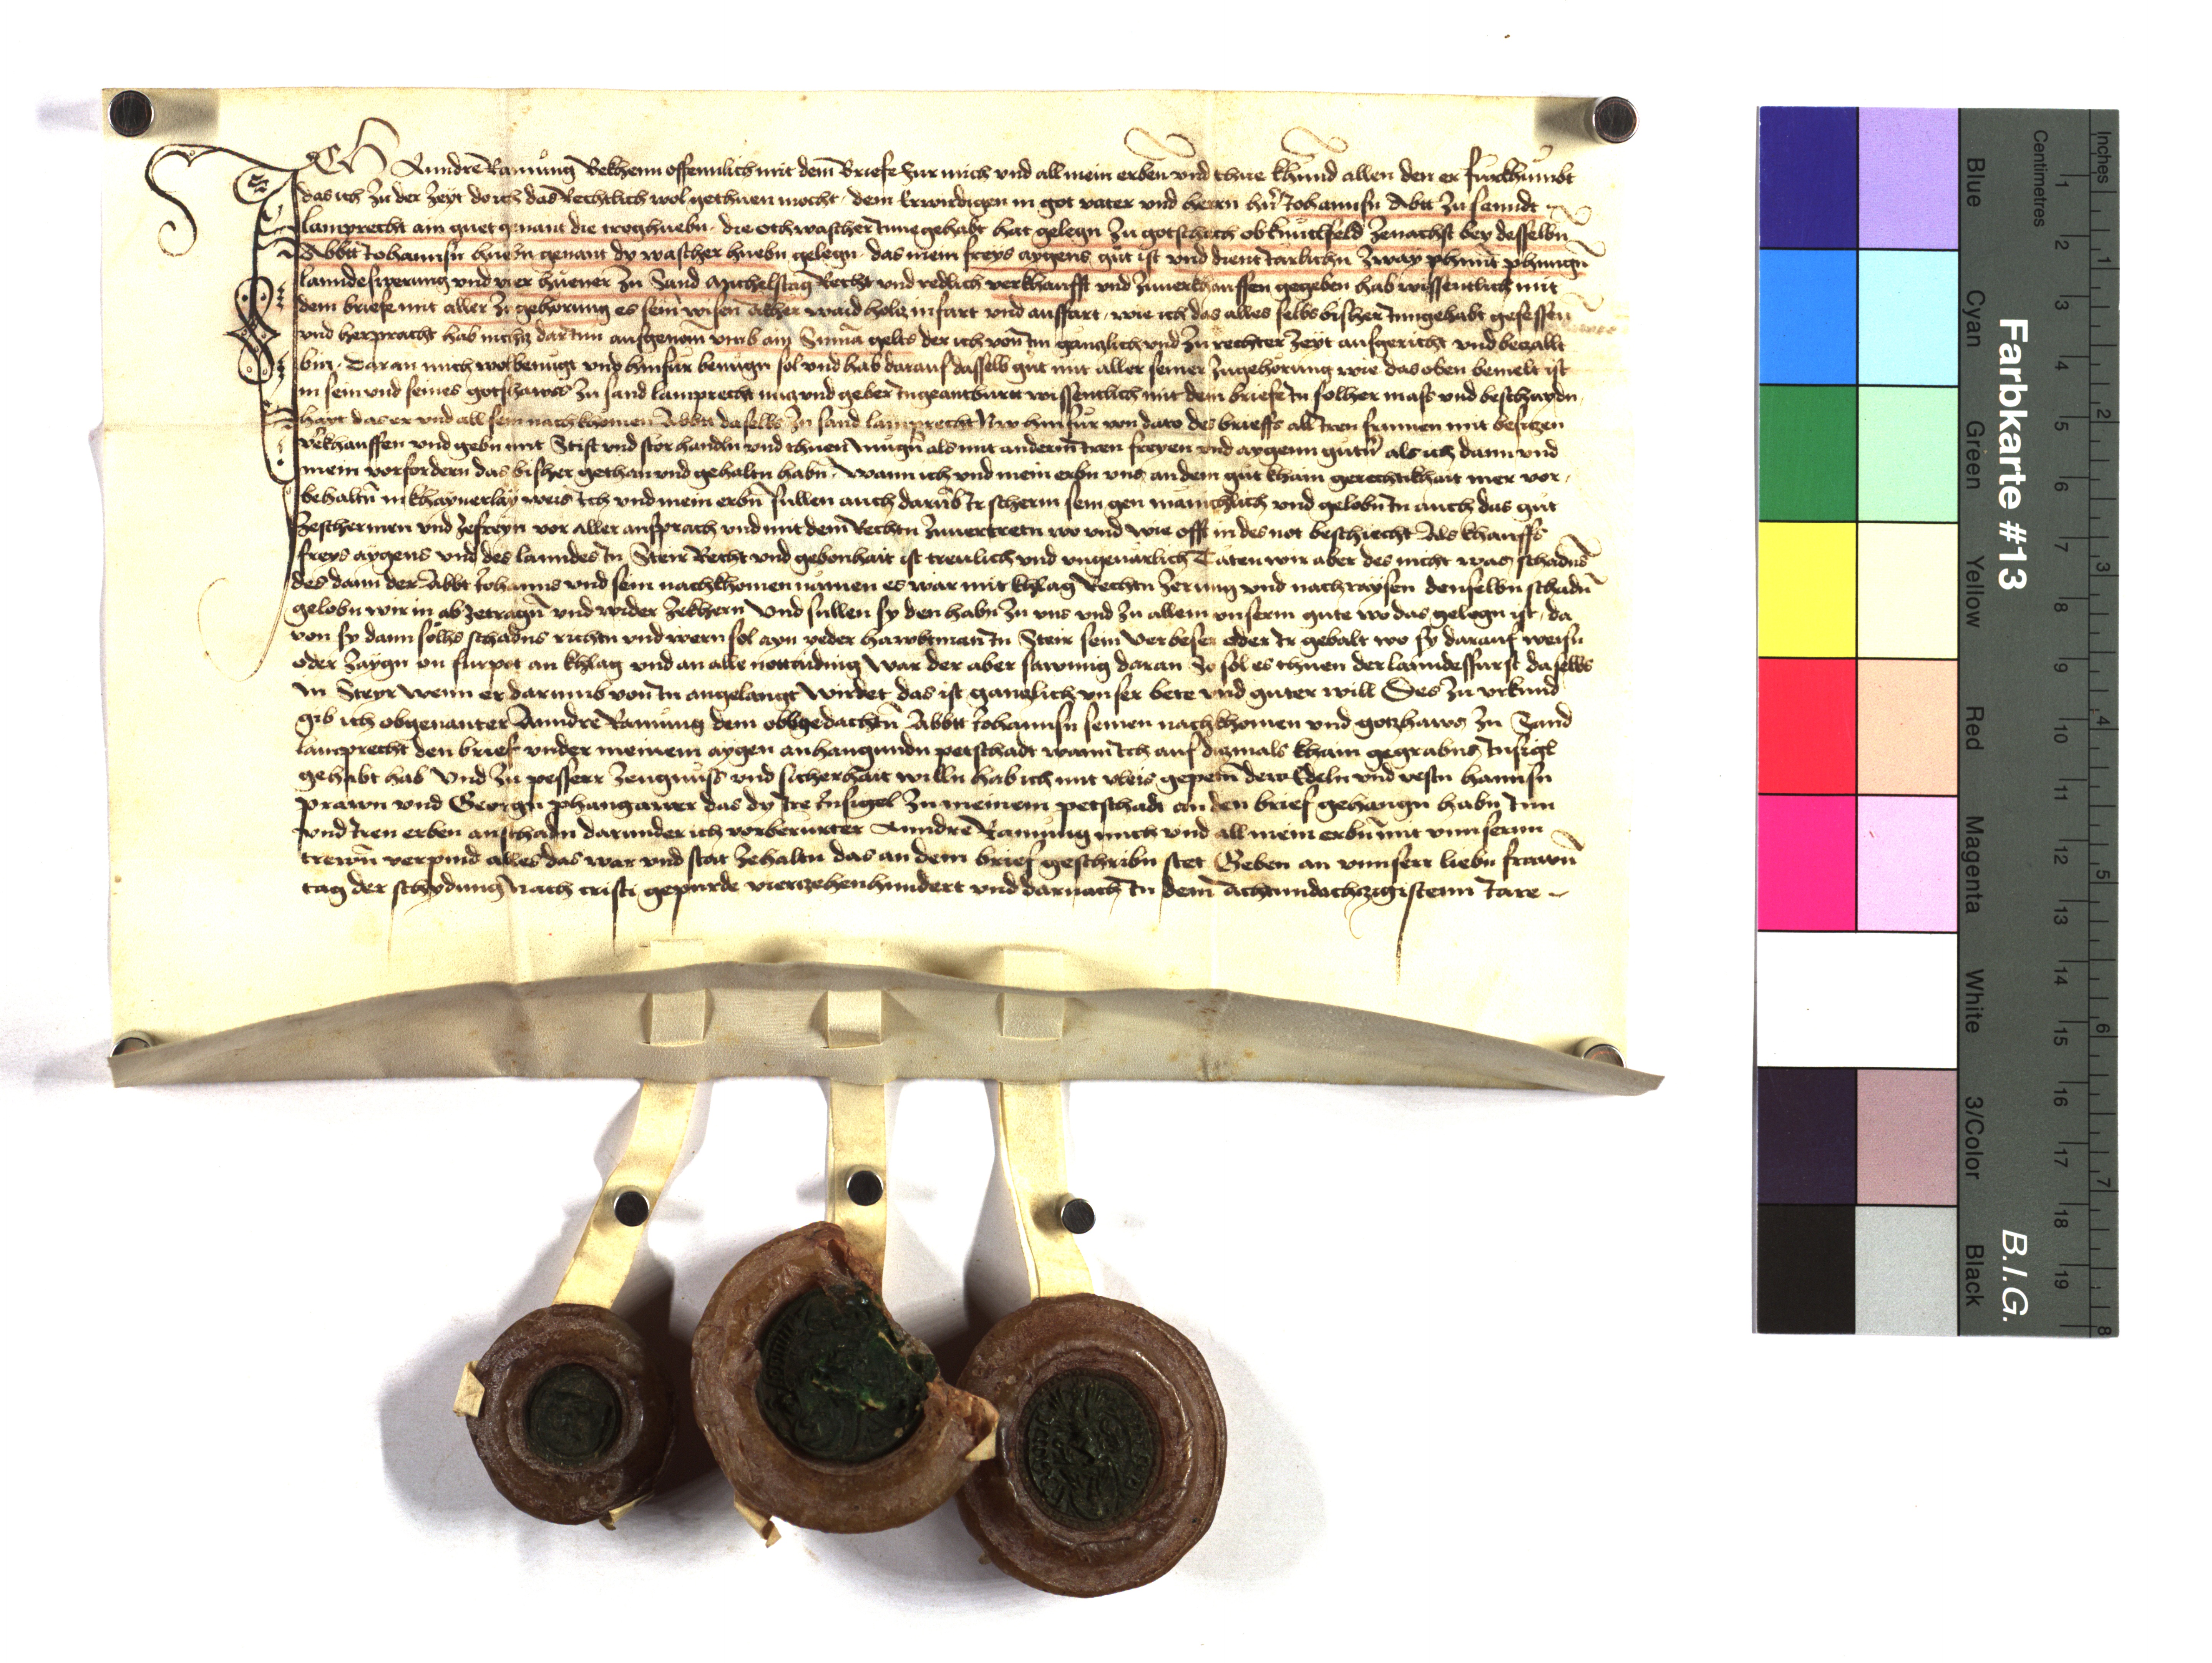 Ich Anndre Ramung Bekhenn offennlich mit dem Briefe Fur mich und all mein erben und thue khund allen den er furkhumbt
das ich zu der zeyt do ich das Rechtlich wol gethuen mocht dem Erwirdigen in got vater und herrn hn Johannsn Abtt zu sanndt
lamprecht ain guet genant die troghuebn die  wascher Innegehabt hat gelegn zu gotschach ob knuttlfeld zenachst bey desselbn
Abbtt Johannsn huebn genant dy wascher huebn gelegn das mein freys aygens gut ist und dient Jarlichn zway phunt phennign
lanndeswerung und vier huener zu Sand Michelstag Recht und redlich verkhaufft und zuuerkhauffen gegeben hab wissentlich mit
dem briefe mit aller zugehorung es sein wisen akher waid holtz infart und ausfart wie ich das alles selbs bisher Inngehabt gesessen
und herpracht hab nichtz dar Inn ausgenom umb ain Suma gelts der ich von Im ganntzlich und zu rechter zeyt ausgericht und betzallt
bin Daran mich wol benugt und hinfur benugn sol und hab darauf dasselb gut mit aller seiner zugehorung wie das oben bemelt ist
in sein und seines gotshaws zu sand lamprecht nutz und geber Ingeantburtt wissentlich mit dem briefe In solher mass und beschaydn
hayt das er und all sein nachkhomen Abbtt daselbs zu sand lamprecht Nw hinfur von dato des brieffs all Iren frumen mit besitzen
verkhauffen und gebn mit Stift und stor handln und thuen mugn als mit anderm Iren freyen und aygenn gutn als ich dann und
mein vorfordern das bisher gethan und gehaltn habn Wann ich und mein erbn uns an dem gut khain gerechtikhait mer vor
behaltn in khaynerlay weis Ich und mein erbn sullen auch darub Ir scherm sein gen manichlich und gelobn In auch das gut
zeschermen und zefreyn vor aller ansprach und mit dem Rechtn zuuertretn wo und wie offt in des not beschiecht Als khauffs
freys aygens und des lanndes In Steir Recht und gebonhait ist treulich und ungeuarlich Taten wir aber des nicht was schadns
des dann der Abbt Johanns und sein nachkhomen namen es war mit khlag Rechtn zerung und nachraysen denselbn schadn
gelobn wir in ab zetragn und wider zekhern Und sullen sy den habn zu uns und zu allem unserm gute wo das gelegn ist da
von sy dann solhs schadns richtn und wern sol ayn yeder hawbtman In Steir sein verbeser oder Ir gebalt wo sy darauf weisn
oder zaygn on furpot an khlag und an alle nottaiding War der aber sawmig daran So sol es thuen der lanndesfurst daselbs
In Steyr wenn er darumb von In angelangt wirdet das ist ganntzlich unser bete und guter will Des zu urkund
gib ich obgenanter Anndre Ramung dem obgedachtn Abbtt Johannsn seinen nachkhomen und gotzhaws zu Sand
lamprecht den brief under meinem aygen anhangundn petschadt wann Ich auf dizmals khain gegrabns Insigl
gehabt hab Und zu pesserr zeugnuss und sicherhait willn hab ich mit vleis gepetn die Edeln und vestn hannsn
prawn und Georgn phangawer das dy Ire Insigel zu meinem petschadt an den brief gehangn habn Inn
und Iren erben an schadn darunder ich vorberurter Anndre Ramung mich und all mein erbn mit unnsernn
trewn verpind alles das war und stat zehaltn das an dem brief geschribn stet Geben an unnserr liebn frawn
tag der schydung Nach cristi gepurde viertzehenhundert und darnach In dem achtundachtzigistenn Jare
Farbkarte #13
B.I.G.
Centimetres
Inches
Blue
Cyan
Green
Yellow
Red
Magenta
White
3/Color
Black
1 2 3 4 5 6 7 8 9 10 11 12 13 14 15 16 17 18 19
1 2 3 4 5 6 7 8